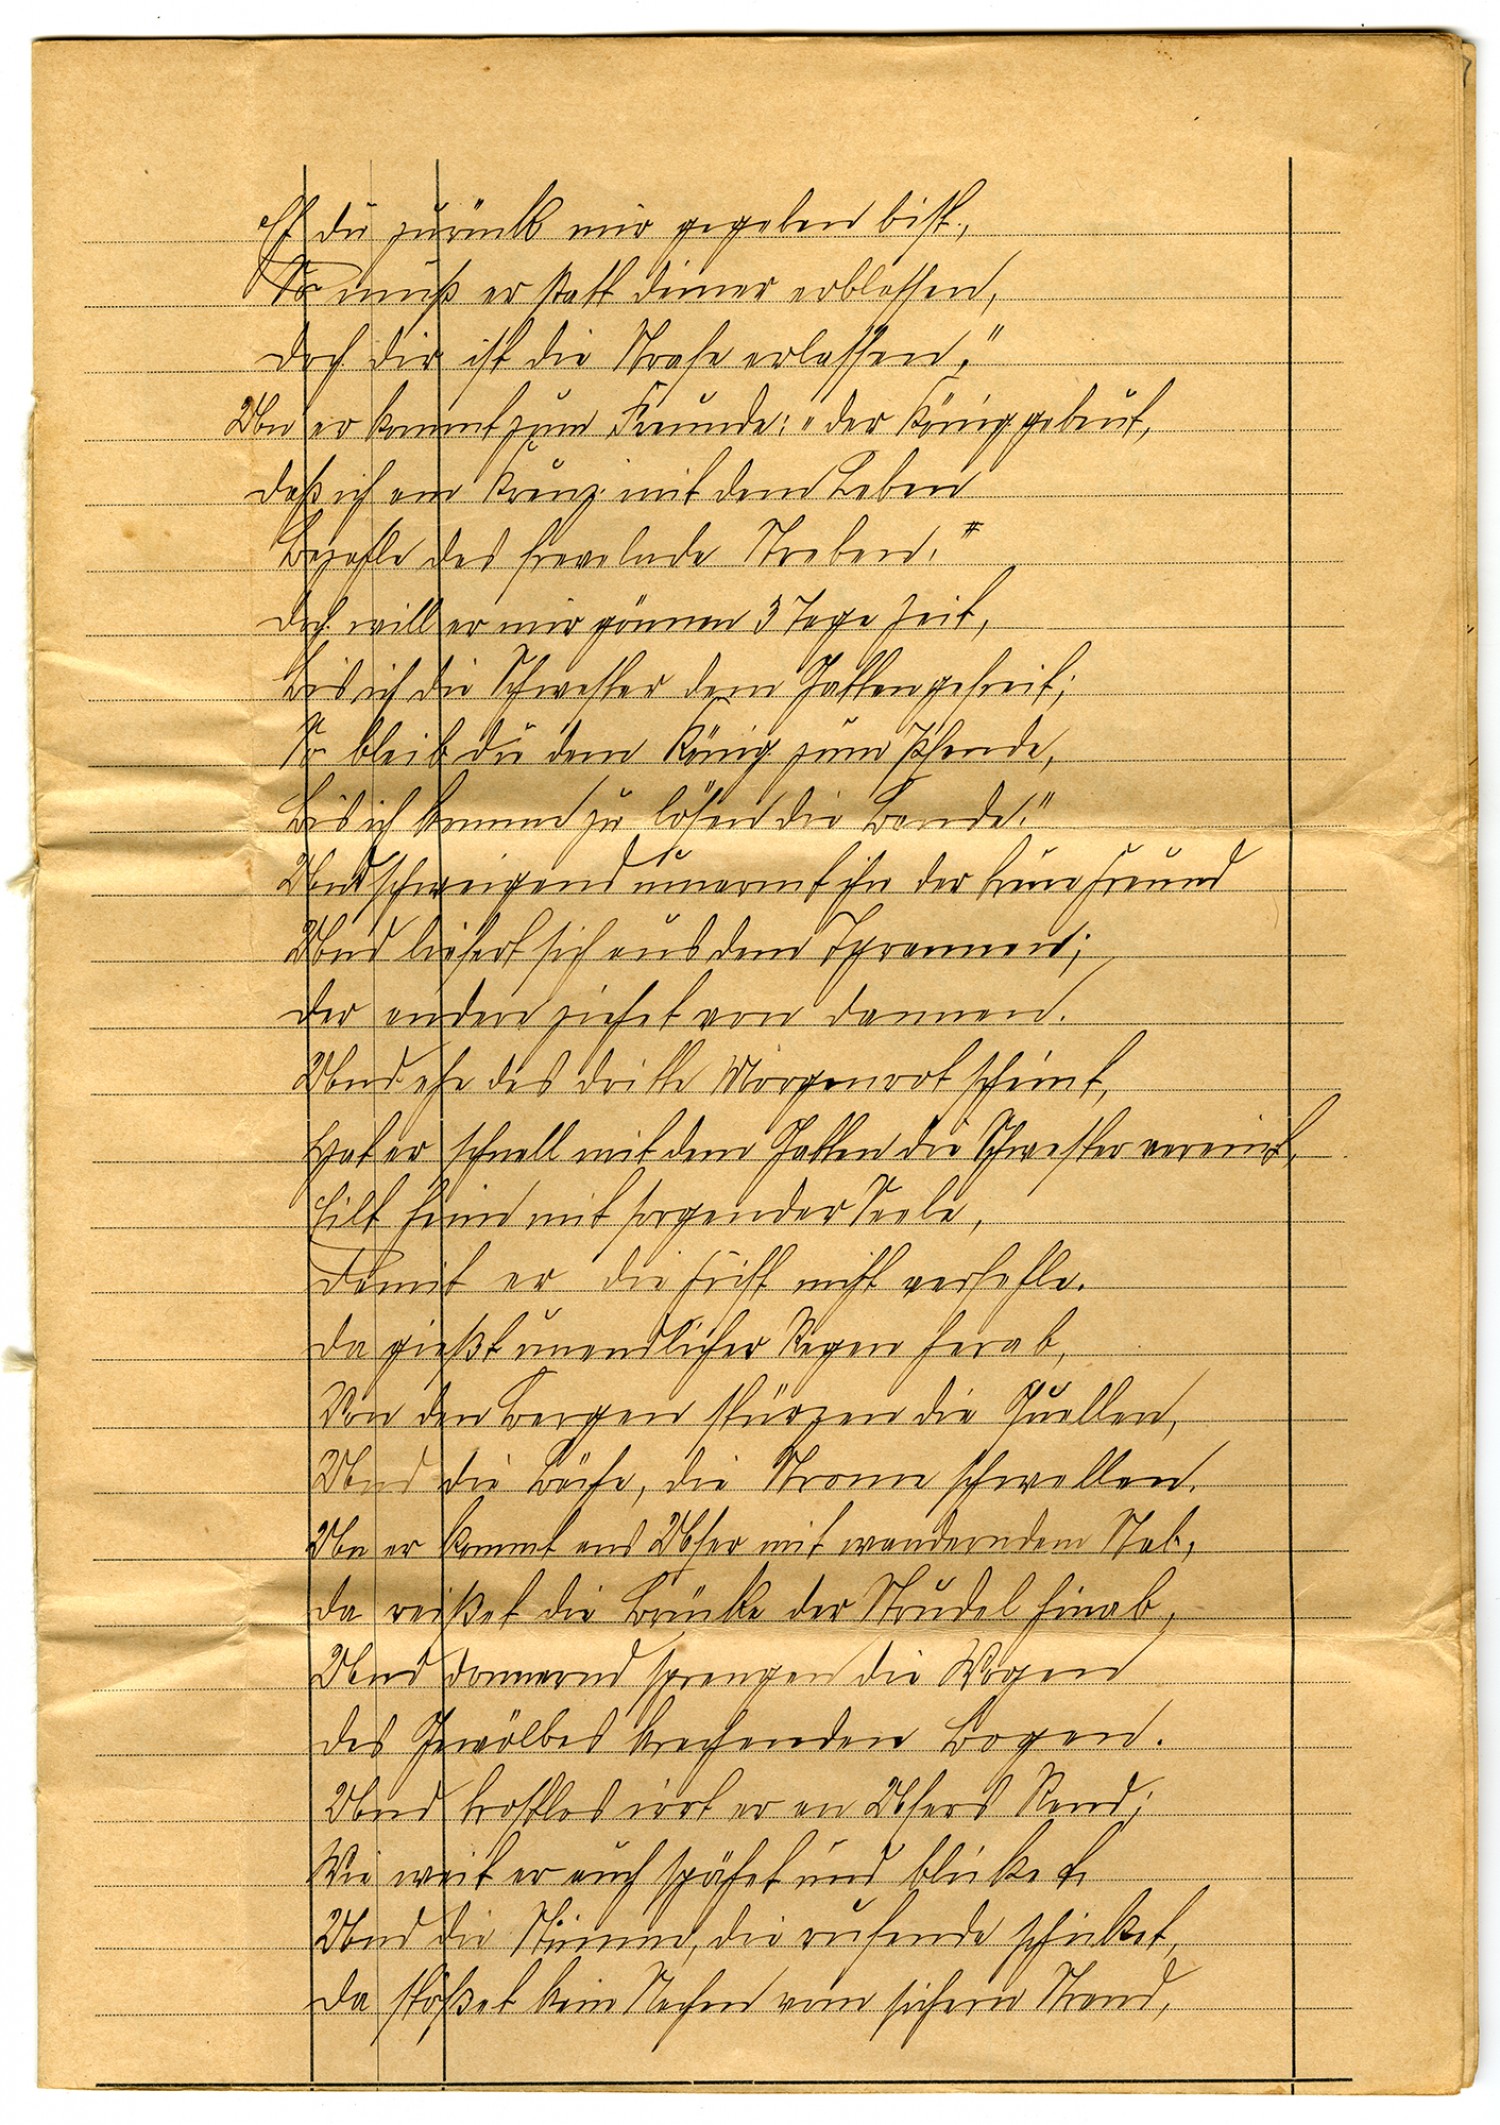 Eh du zurück mir gegeben bist,
So muß er statt deiner erblassen,
Doch dir ist die Strafe erlassen."
Un er kommt zum Freunde: "der König gebeut,
Daß ich am Kreuz mit dem Leben
Bezahle das frevelnde Streben."
Doch will er mir gönnen 3 Tage Zeit,
Bis ich die Schwester dem Gatten gefreit;
So bleib du dem König zum Pfande,
Bis ich komme zu lösen die Bande."
Und schweigend umarmt ihn der treue Freund
Und liefert sich aus dem Tyrannen;
Der andere ziehet von dannen.
Und ehe das dritte Morgenrot scheint,
Hat er schnell mit dem Gatten die Schwester vereint,
Eilt heim mit sorgender Seele,
Damit er die Frist nicht verfehle.
Da gießt unendlicher Regen herab,
Von den Bergen stürzen die Quellen,
Und die Bäche, die Strome schwellen.
Un er kommt ans Ufer mit wanderndem Stab,
Da reißet die Brücke der Strudel hinab,
Und donnernd sprengen die Wogen
Des Gewölbes krachenden Bogen.
Und trostlos irrt er an Ufers Rand;
Wie weit er auch spähet und blicket
Und die Stimme, die rufende schicket,
Da stößet kein Nachen vom sichern Strand,